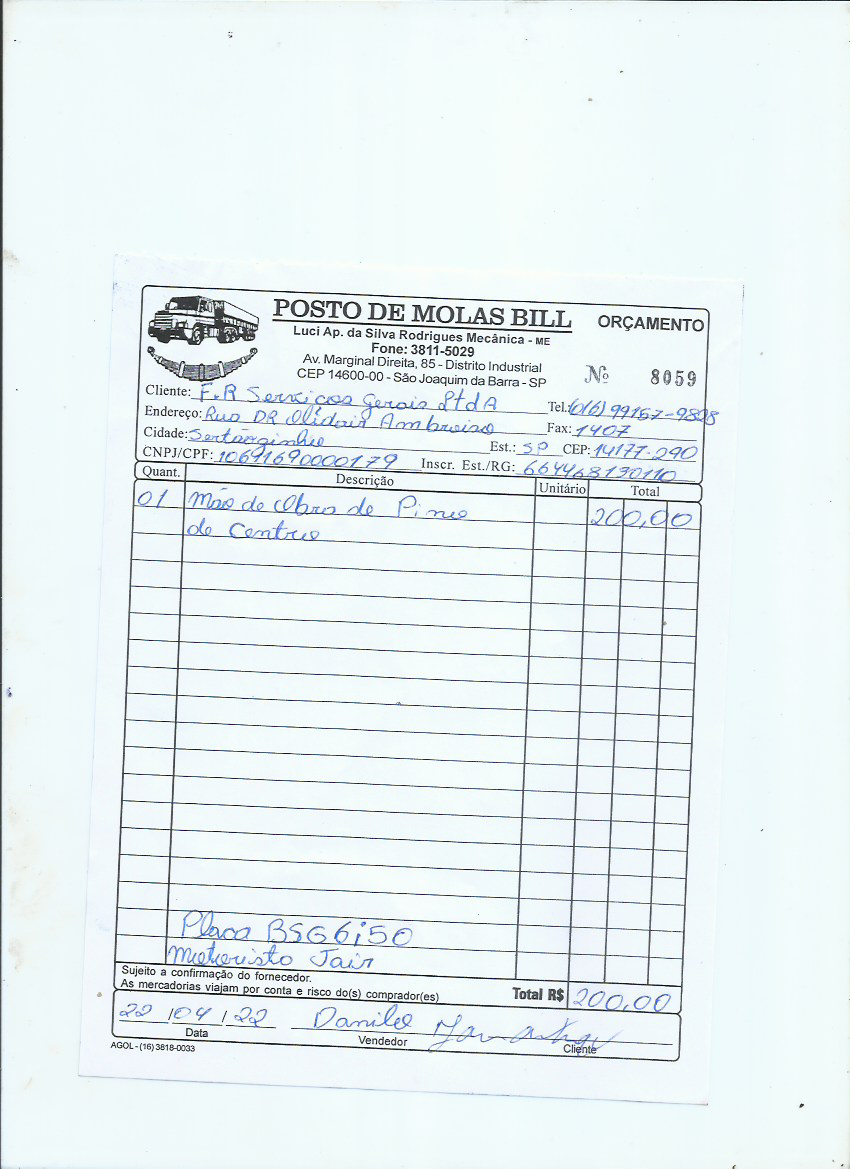 POSTO DE MOLAS BILL
ORÇAMENTO
Luci Ap. da Silva Rodrigues Mecânica - ME
Fone: 3811-5029
Av. Marginal Direita, 85 - Distrito Industrial
CEP 14600-00 - São Joaquim da Barra - SP
Nº 8059
Cliente: F.R Serviços Gerais LtdA Tel.: (016) 99157-9808
Endereço: Rua DR Olidair Ambrosio Fax: 1407
Cidade: Sertãozinho Est.: SP CEP: 14177-290
CNPJ/CPF: 10691690000179 Inscr. Est./RG: 664468130110
Quant. Descrição Unitário Total
01 Mão de Obra de Pino 200,00
de Centro
Placa BSG6i50
Motoristo Jair
Sujeito a confirmação do fornecedor.
As mercadorias viajam por conta e risco do(s) comprador(es)
Total R$ 200,00
22 / 04 / 22 Danilo
Data Vendedor Cliente
AGOL - (16) 3818-0033